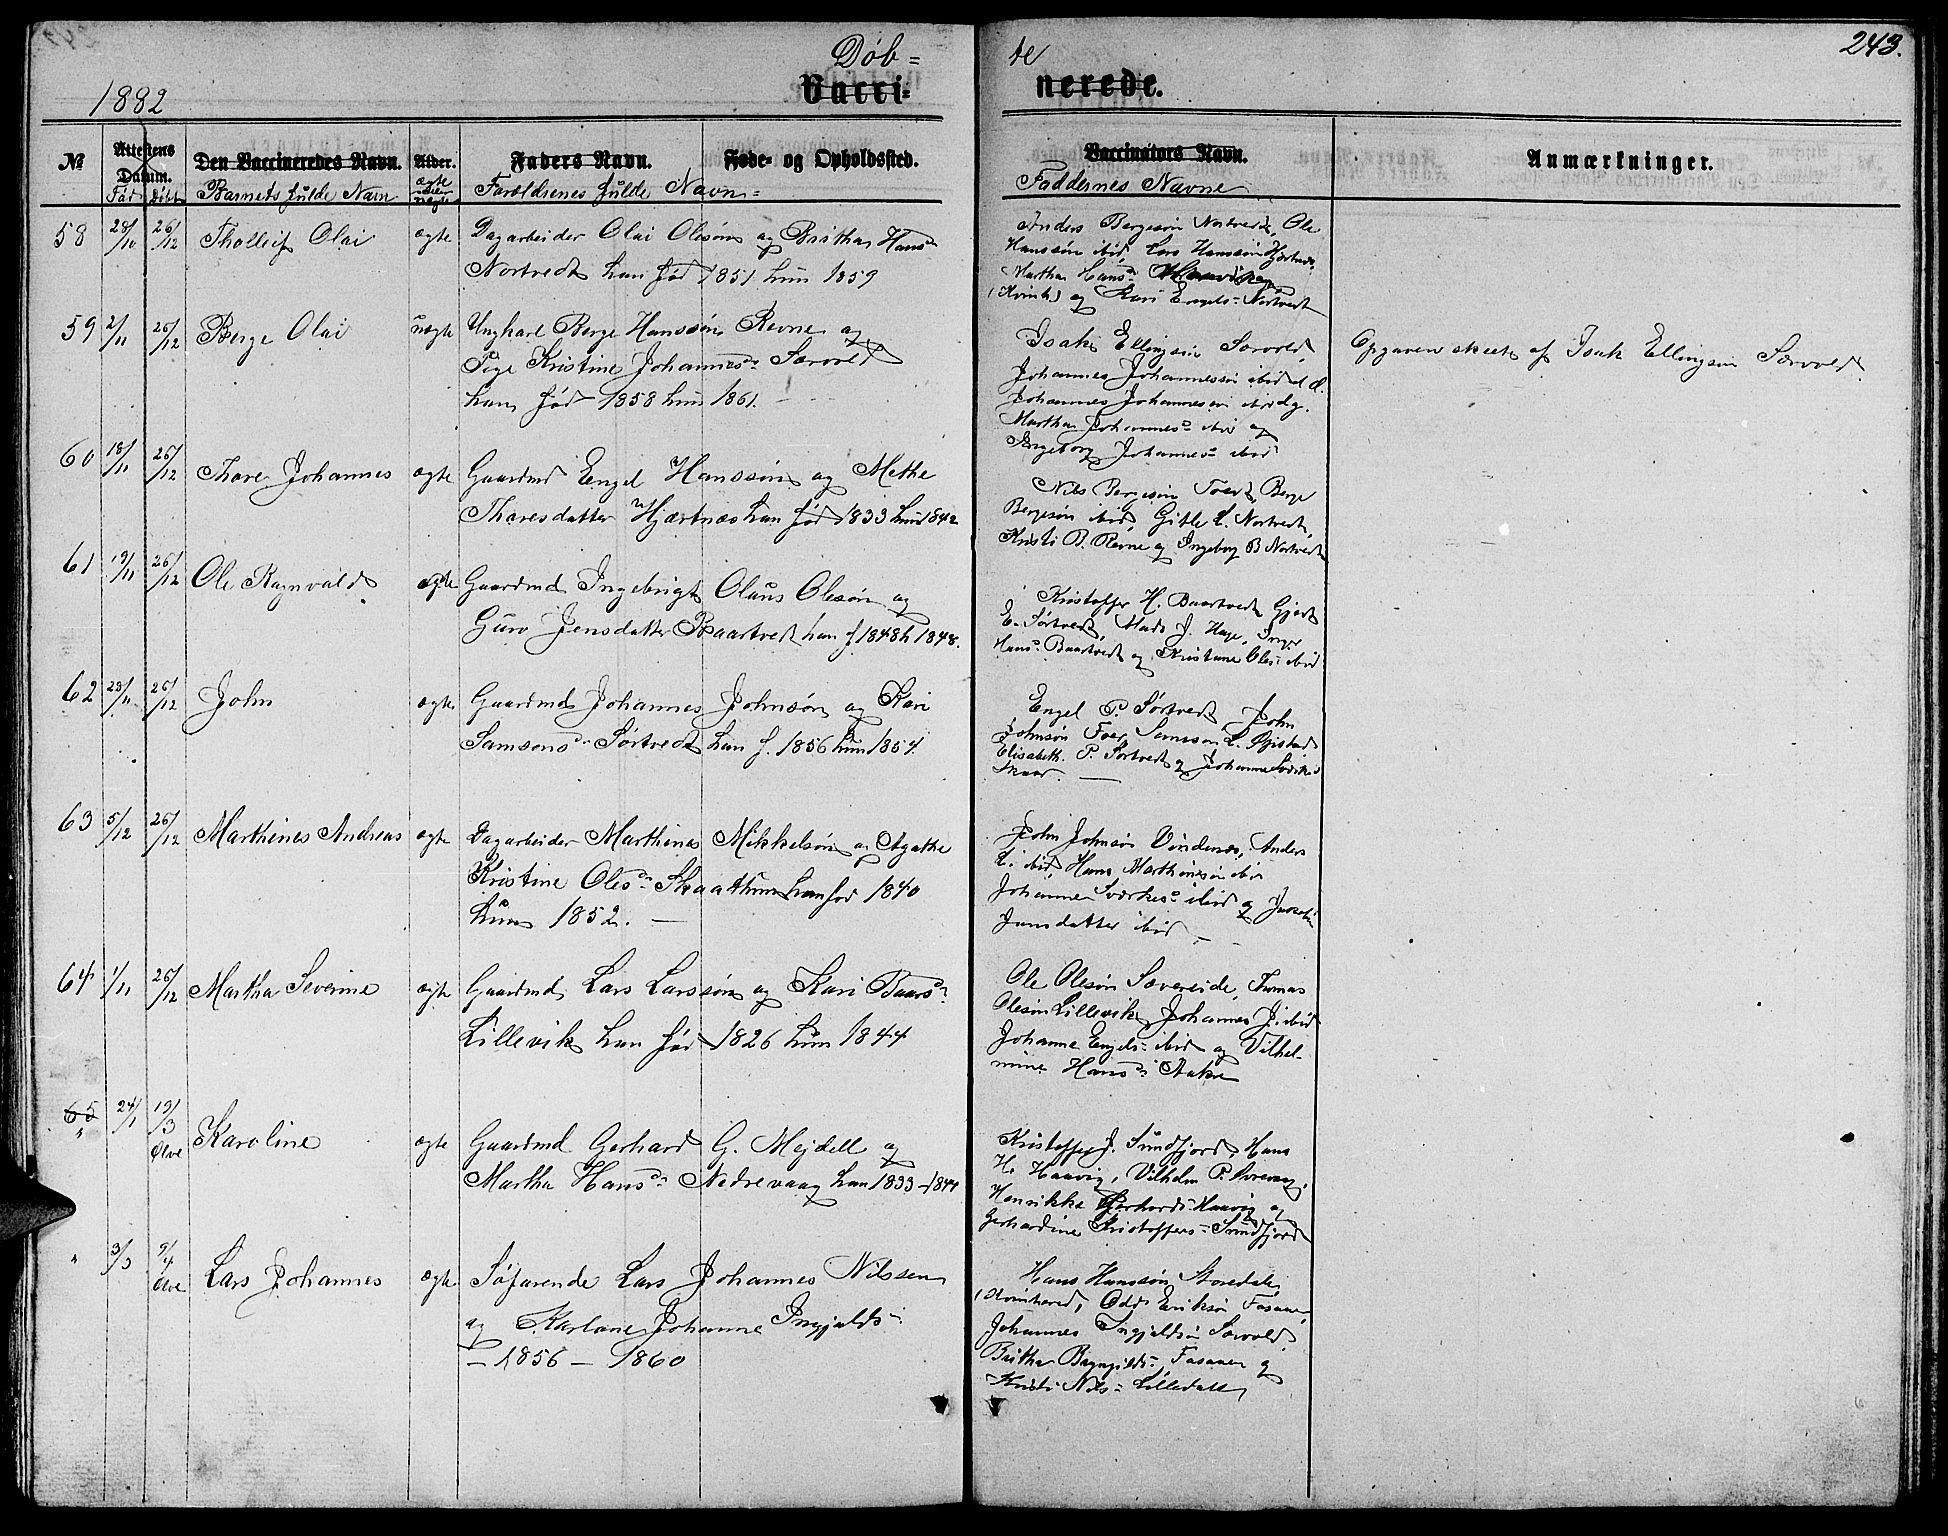 243.
Døb= te
1882
Vacci= nerede.
№ Attestens Datum. Den Vaccineredes Navn. Alder. Faders Navn. Føde- og Opholdssted. Vaccinators Navn. Anmærkninger.
Fød Døbt Barnets fulde Navn ægte eller uægte Forældrenes fulde Navn= Faddernes Navne
58 28/10 26/12 Tholleif Olai ægte Dagarbeider Olai Olesøn og Britha Hansd
Nortvedt han fød 1851 hun 1859
Anders Bergesøn Nortvedt, Ole
Hanssøn ibid, Lars Hanssøn
Martha Hansd
og Kari Engels- Nortvedt
59 2/11 26/12 Berge Olai uægte Ungkarl Berge Hanssøn Revne og
Pige Kristine Johannesd Særvold
han fød 1858 hun 1861.
Isak Ellingsen Særvold,
Johannes Johannessøn ibid d. æ.
Johannes Johannesen ibid dy.
Martha Johannesd ibid og
Ingeborg Johannesd ibid
Opgaven skeet af Isak Ellingsen Særvold.
60 18/11 26/12 Thore Johannes ægte Gaardmd Engel Hanssøn og Methe
Thoresdatter Hjærtnæs han fød 1833 hun 1842
Nils Bergesøn Berge
Bergesøn ibid, Gitle L. Nortvedt,
Kristi B. Revne og Ingeborg B Nortvedt
61 19/11 26/12 Ole Ragnvald ægte Gaardmd Ingebrigt Olaus Olesøn og
Guro Jensdatter Baartvedt han f 1848 h 1848.
Kristoffer H. Baartvedt, Gjert
E. Sørtvedt, Mads J. Hage, Inger
Hansd Baartvedt og Kristiane Oles- ibid
62 23/11 26/12 John ægte Gaardmd Johannes Johnsøn og Kari
Samsonsd Sørtvedt han f. 1856 hun 1854.
Engel P. Sørtvedt, John
Johnsøn Samson L.
Elisabeth P. Sørtvedt og Johanne
Skaar
63 5/12 26/12 Marthines Andreas ægte Dagarbeider Marthines Mikkelsøn og Agathe
Kristine Olesd Skaathun han fød 1840
hun 1852.
John Johnsøn Vindenæs, Anders
L. ibid, Hans Marthinesøn ibid
Johanne Sværkesd ibid og
Jansdatter ibid
64 1/11 26/12 Martha Severine ægte Gaardmd Lars Larssøn og Kari Baarsd
Lillevik han fød 1826 hun 1844
Ole Olesøn Sævereide, Tomas
Olesøn Lillevik, Johannes J. ibid
Johanne Engels- ibid og Vilhel-
mine Hansd Aakre
65 " 24/1 19/3 Ølve Karoline ægte Gaardmd Gerhard G. Mejdell og
Martha Hansd Nedrevaag han 1833 - 1844
Kristoffer J. Sundfjord, Hans
H. Haavig, Vilhelm P.
Henrikke Gerhards- Haavig og
Gerhardine Kristoffers- Sundfjord
" 3/3 9/4 Ølve Lars Johannes ægte Søfarende Lars Johannes Nilssen
og Karlane Johanne Ingjalds-
- 1856 - 1860
Hans Hanssøn Storedale
(Kvinherred, Odd Eriksøn Fosaaen
Johannes Ingjaldsøn Særvold,
Britha Fosaaen og
Kristi Nils- Lilledale